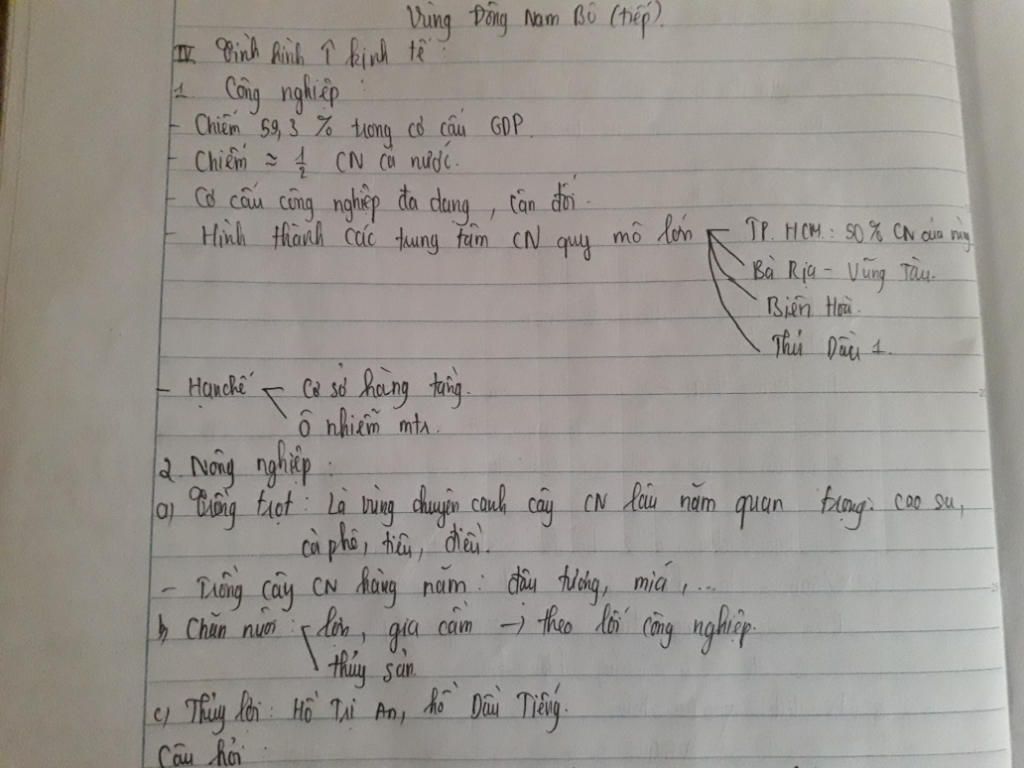 Vùng Đông Nam Bộ (tiếp).
IV. Tình hình ↑ kinh tế :
1. Công nghiệp :
- Chiếm 59,3 % trong cơ cấu GDP.
- Chiếm ≈ 1/2 CN cả nước.
- Cơ cấu công nghiệp đa dạng, cân đối.
- Hình thành các trung tâm CN quy mô lớn TP. HCM: 50 % CN của vùng
Bà Rịa - Vũng Tàu.
Biên Hoà.
Thủ Dầu 1.
- Hạn chế Cơ sở hàng tầng.
Ô nhiễm mtr.
2. Nông nghiệp :
a) Trồng trọt : Là vùng chuyên canh cây CN lâu năm quan trọng: cao su,
cà phê, tiêu, điều.
- Trồng cây CN hàng năm: đậu tương, mía,...
b) Chăn nuôi : lợn, gia cầm → theo lối công nghiệp.
thủy sản
c) Thủy lợi : Hồ Trị An, hồ Dầu Tiếng.
Câu hỏi :